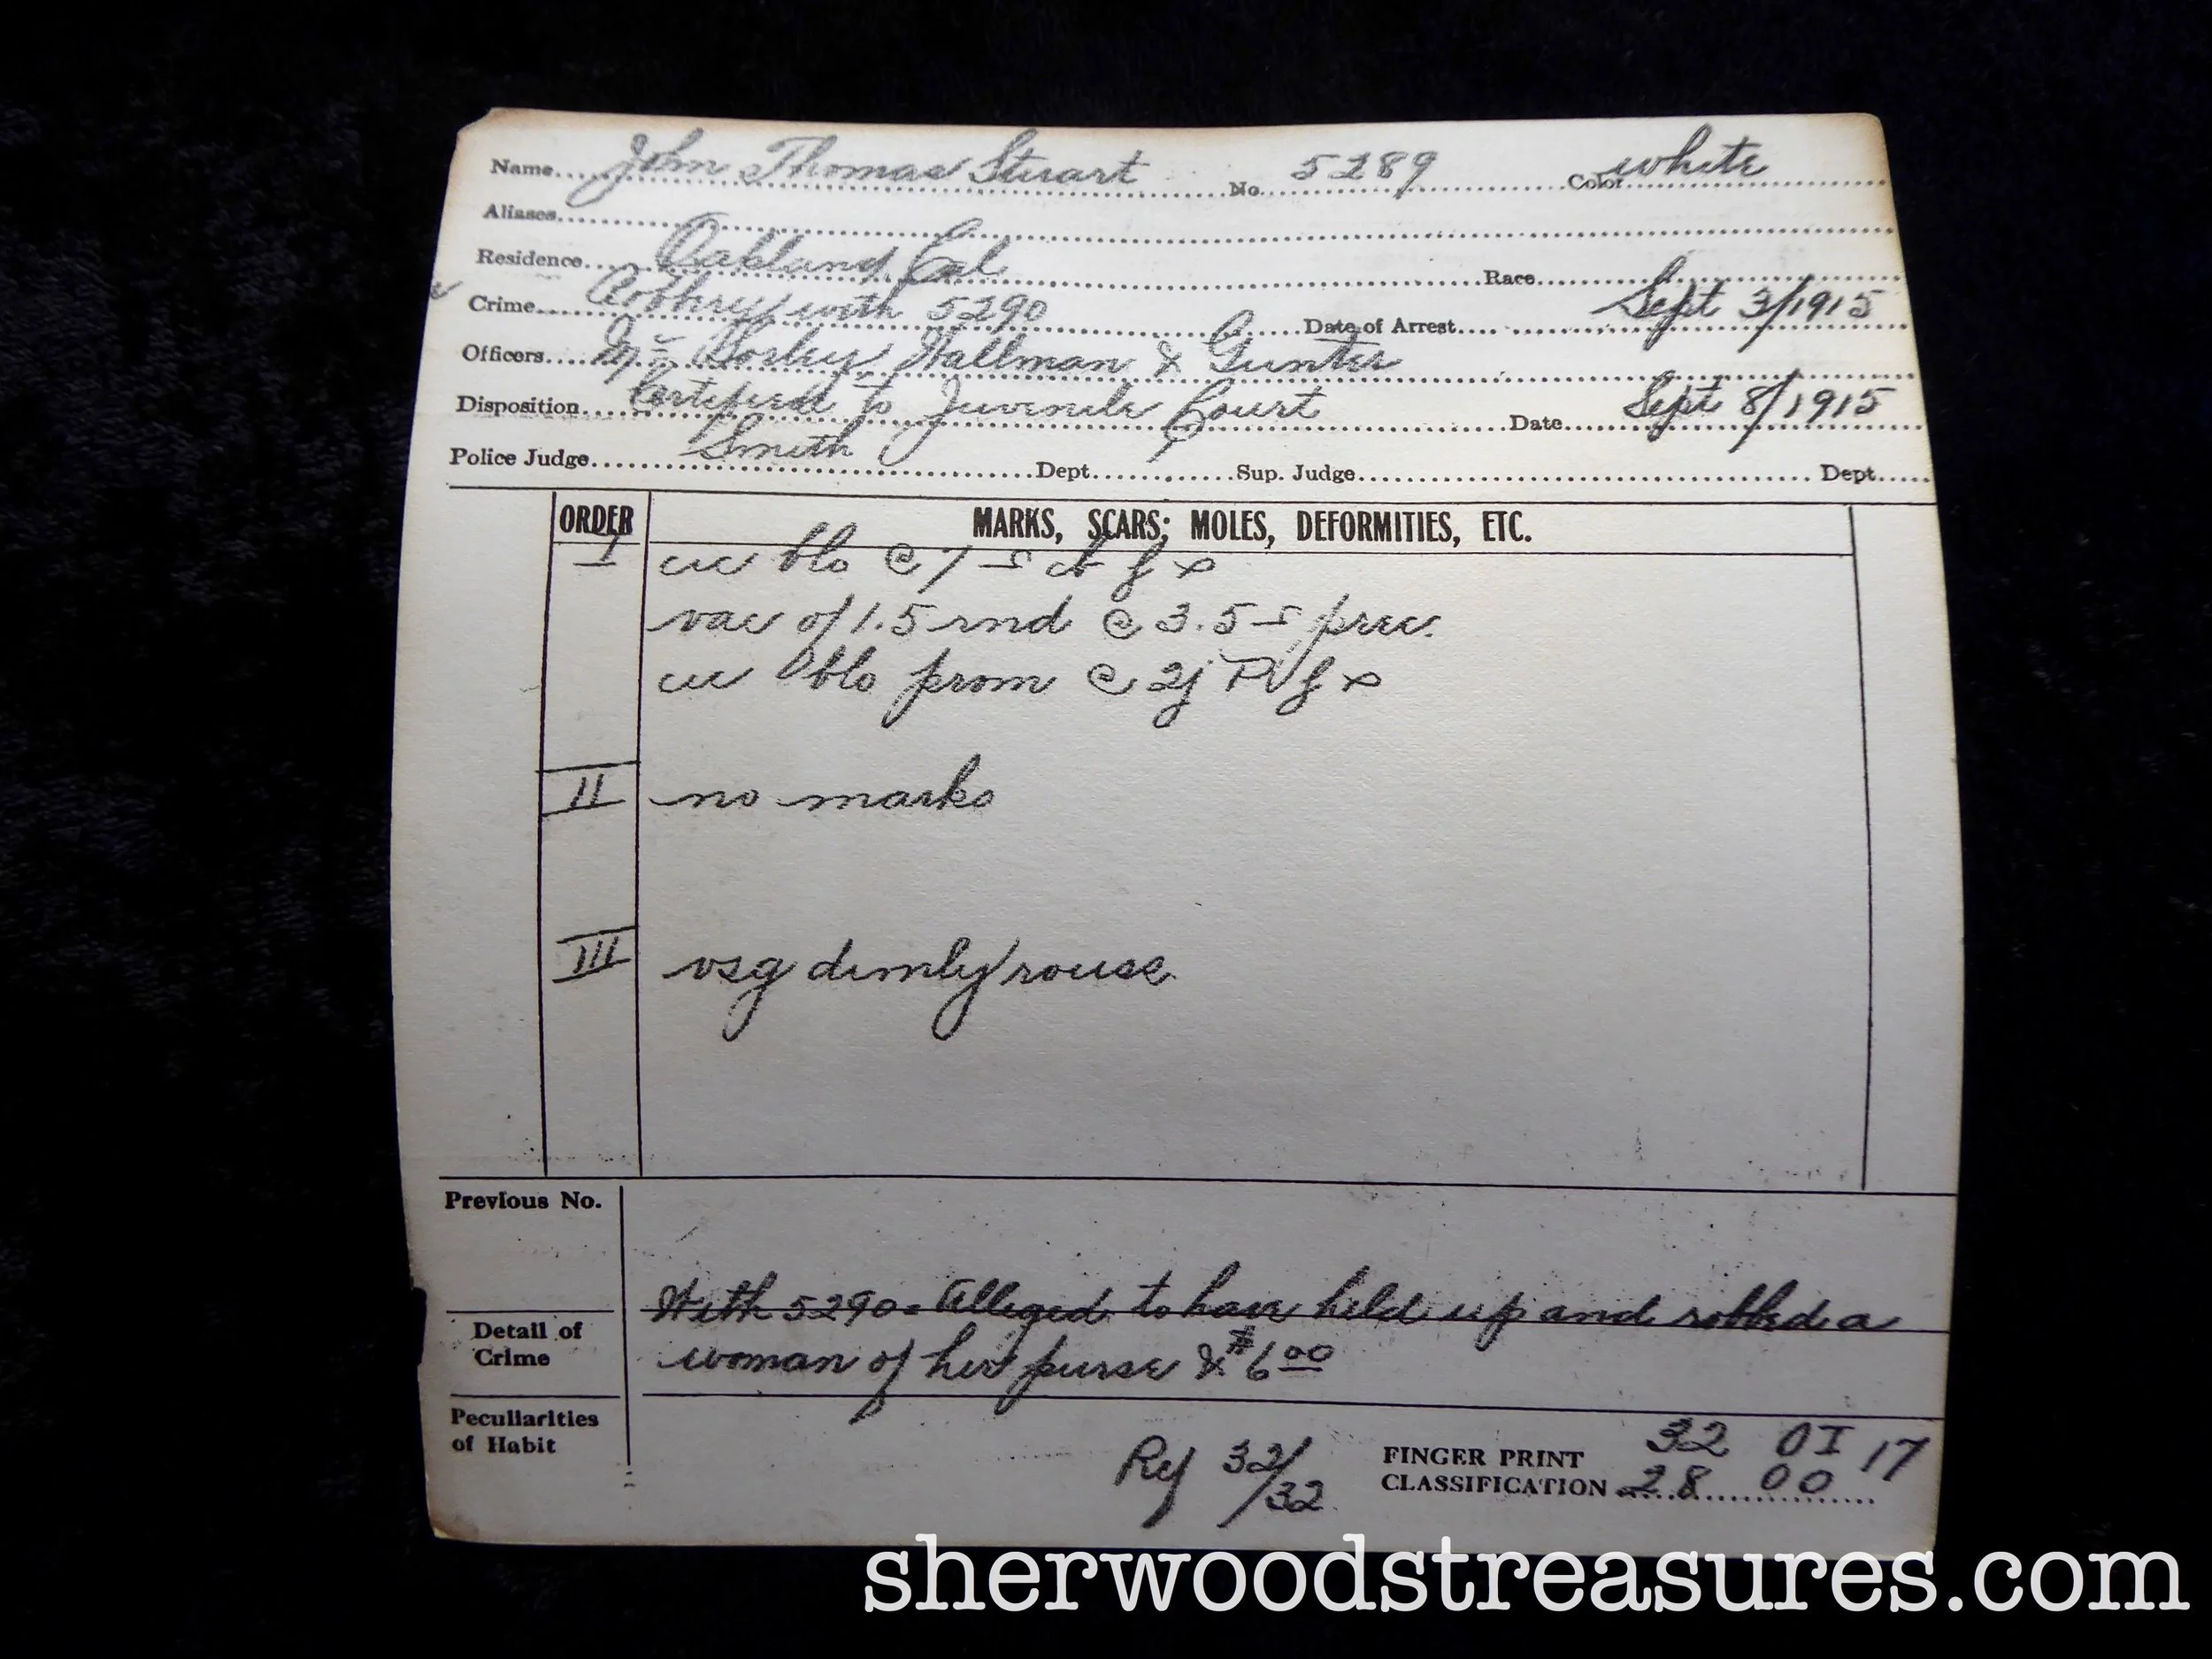 Name John Thomas Stuart No. 5289 Color white
Aliases
Residence Oakland Cal Race
Crime Robbery with 5290 Date of Arrest Sept 3/1915
Officers Hallman & Gunter
Disposition Certified to Juvenile Court Date Sept 8/1915
Police Judge Smith Dept. Sup. Judge Dept.
ORDER MARKS, SCARS; MOLES, DEFORMITIES, ETC.
I cic blo @ 7
vac of 1.5 rnd @ 3.5 prec.
cic blo prom @ 2j
II no marks
III vsg dimly rouse
Previous No.
With 5290 - Alleged to have held up and robbed a
Detail of Crime woman of her purse & $6 00
Peculiarities of Habit
Ref 32/32 FINGER PRINT CLASSIFICATION 32 OI 17
28 OO
sherwoodstreasures.com